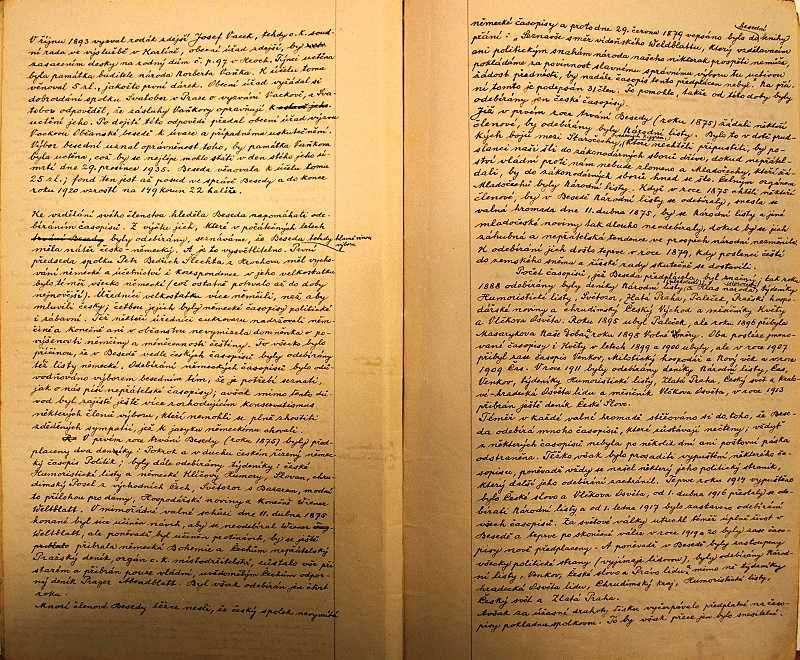 V říjnu 1893 vyzval rodák zdejší Josef Vacek, tehdy c.k. soud-
ní rada ve výslužbě v Karlíně, obecní úřad zdejší, by
zasazením desky na rodný dům č. p. 97 v Hroch. Týnci uctěna
byla památka buditele národa Norberta Vaňka. K účelu tomu
věnoval 5 zl., jakožto první dárek. Obecní úřad vyžádal si
dobrozdání spolku Svatobor v Praze o vyzvání Vackově, a Sva-
tobor odpověděl, že zásluhy Vaňkovy opravňují k
uctění jeho. Po dojití této odpovědi předal obecní úřad výzvu
Vackovu Občanské besedě k úvaze a případnému uskutečnění.
Výbor besední uznal oprávněnost toho, by památka Vaňkova
byla uctěna, což by se nejlépe mohlo státi v den stého jeho ú-
mrtí dne 29. prosince 1935. Beseda věnovala k účelu tomu
25 zl.; fond ten jest až posud ve správě Besedy a do konce
roku 1920 vzrostl na 149 korun 22 haléře.
Ke vzdělání svého členstva hleděla Beseda napomáhati ode-
bíráním časopisů. Z výčtu jich, které v počátečních letech
byly odebírány, seznáváme, že Beseda
měla nátěr česko-německý. A je to vysvětlitelno. První
předseda spolku Petr Bedřich Šlechta z Hrochova měl vycho-
vání německé a účetnictví i korespondence v jeho velkostatku
bylo téměř všecko německé (což ostatně potrvalo až do doby
nejnovější). Úředníci velkostatku více neuměli, než aby
mluvili česky; četbou jejich byly německé časopisy politické
i zábavní. Též někteří úředníci cukrovaru nadržovali něm-
čině a konečně ani v občanstvu nevymizela domněnka o po-
výšenosti němčiny a méněcennosti češtiny. To všecko bylo
příčinou, že v Besedě vedle českých časopisů byly odebírány
též listy německé. Odebírání německých časopisů bylo odů-
vodňováno výborem besedním tím, že je potřebí seznati,
jak o nás píší nepřátelské časopisy; avšak mimo tento dů-
vod byl zajisté ještě více rozhodujícím konservatismus
některých členů výboru, kteří nemohli se plně zhostiti
zděděných sympatií, jež k jazyku německému chovali.
V prvém roce trvání Besedy (roku 1875) byly před-
placeny dva deníky: Pokrok a v duchu českém řízený němec-
ký časopis Politik; byly dále odebírány týdeníky: české
Humoristické listy a německé Klíčovy Humory, Slovan, chru-
dimský Posel z východních Čech, Světozor s Bazarem, modní
to přílohou pro dámy, Hospodářské noviny a konečně Wiener
Weltblatt. V mimořádné valné schůzi dne 11. dubna 1875
konané byl sice učiněn návrh, aby se neodebíral Wiener
Weltblatt, ale poněvadž byl učiněn protinávrh, by se ještě
přibrala německá Bohemie a Čechům nepřátelský
Pražský deník, orgán c.k. místodržitelství, zůstalo vše při
starém a přibrán pouze vládní, úštěpačný Čechům odpor-
ný deník Prager Abendblatt. Byl však odebírán jen čtvrt
roku.
Mnozí členové Besedy těžce nesli, že český spolek nevymýtá
německé časopisy a proto dne 29. června 1879 vepsáno bylo do knihy
Besední
přání: „Seznavše směr vídeňského Weldblattu, který vzdělávacím
ani politickým snahám národa našeho nikterak prospěti nemůže,
pokládáme za povinnost slavnému správnímu výboru tu uctivou
žádost přednésti, by nadále časopis tento předplácen nebyl. Na přá-
ní tomto je podepsán 31 člen. To pomohlo, takže od této doby byly
odebírány jen české časopisy.
Již v prvém roce trvání Besedy (roku 1875) žádali někteří
členové, by odebírány byly Národní listy. Bylo to v době prud-
kých bojů mezi Staročechy, kteří nechtěli připustiti, by po-
slanci naši šli do zákonodárných sborů dříve, dokud nepřátel-
ství vládní proti nám nebude zlomeno a Mladočechy, kteří žá-
dali, by do zákonodárných sborů hned se šlo. Čelným orgánem
Mladočechů byly Národní listy. Když v roce 1875 chtěli někteří
členové, by v Besedě Národní listy se odebíraly, snesla se
valná hromada dne 11. dubna 1875, by se Národní listy a jiné
mladočeské noviny tak dlouho neodebíraly, dokud by se jich
záhubná a nepřátelská tendence ve prospěch národní nezměnila.
K odebírání jich došlo teprve v roce 1879, když poslanci čeští
do zemského sněmu a říšské rady skutečně se dostavili.
Počet časopisů, jež Beseda předplácela, byl značný; tak roku
1888 odebírány byly deníky Národní listy, a Hlas národa, týdeníky
Humoristické listy, Světozor, Zlatá Praha, Paleček, Pražské hospo-
dářské noviny a chrudimský Český Východ a měsíčníky Květy
a Vlčkova Osvěta. Roku 1895 ubyl Paleček, ale roku 1896 přibyla
Masarykova Naše Doba, roku 1898 Volné Směry. Oba posléze jmeno-
vané časopisy i Květy v letech 1899 a 1900 ubyly, ale v roce 1907
přibyl zase časopis Venkov, Milotický hospodář a Nový věk a v roce
1909 Čas. V roce 1911 byly odebírány deníky Národní listy, Čas,
Venkov, týdeníky Humoristické listy, Zlatá Praha, Český svět a králo-
vé-hradecká Osvěta lidu a měsíčník Vlčkova Osvěta, v roce 1913
přibrán ještě deník České Slovo.
Téměř v každé valné hromadě stěžováno si do toho, že Bese-
da odebírá mnoho časopisů, které zůstávají nečteny; vždyť
z některých časopisů nebyla po několik dní ani poštovní páska
odstraněna. Těžko však bylo prosaditi vypuštění některého ča-
sopisu, poněvadž vždy se našel některý jeho politický straník,
který další jeho odebírání zachránil. Teprve roku 1914 vypuštěno
bylo České slovo a Vlčkova Osvěta, od 1. dubna 1916 přestaly se ode-
bírati Národní listy a od 1. ledna 1917 bylo zastaveno odebírání
všech časopisů. Za světové války utichl téměř úplně život v
Besedě a teprve po skončení války v roce 1919 a 20 byly zase časo-
pisy nově předplaceny. A poněvadž v Besedě byly zastoupeny
všecky politické strany (vyjímaje lidovou), byly odebírány Národ-
ní listy, Venkov, České slovo a Právo lidu a mimo ně týdeníky
hradecká Osvěta lidu, Chrudimský kraj, Humoristické listy,
Český svět a Zlatá Praha.
Avšak za úžasné drahoty tisku vyčerpávalo předplatné na časo-
pisy pokladnu spolkovou. To by však přece jen bylo snesitelné.